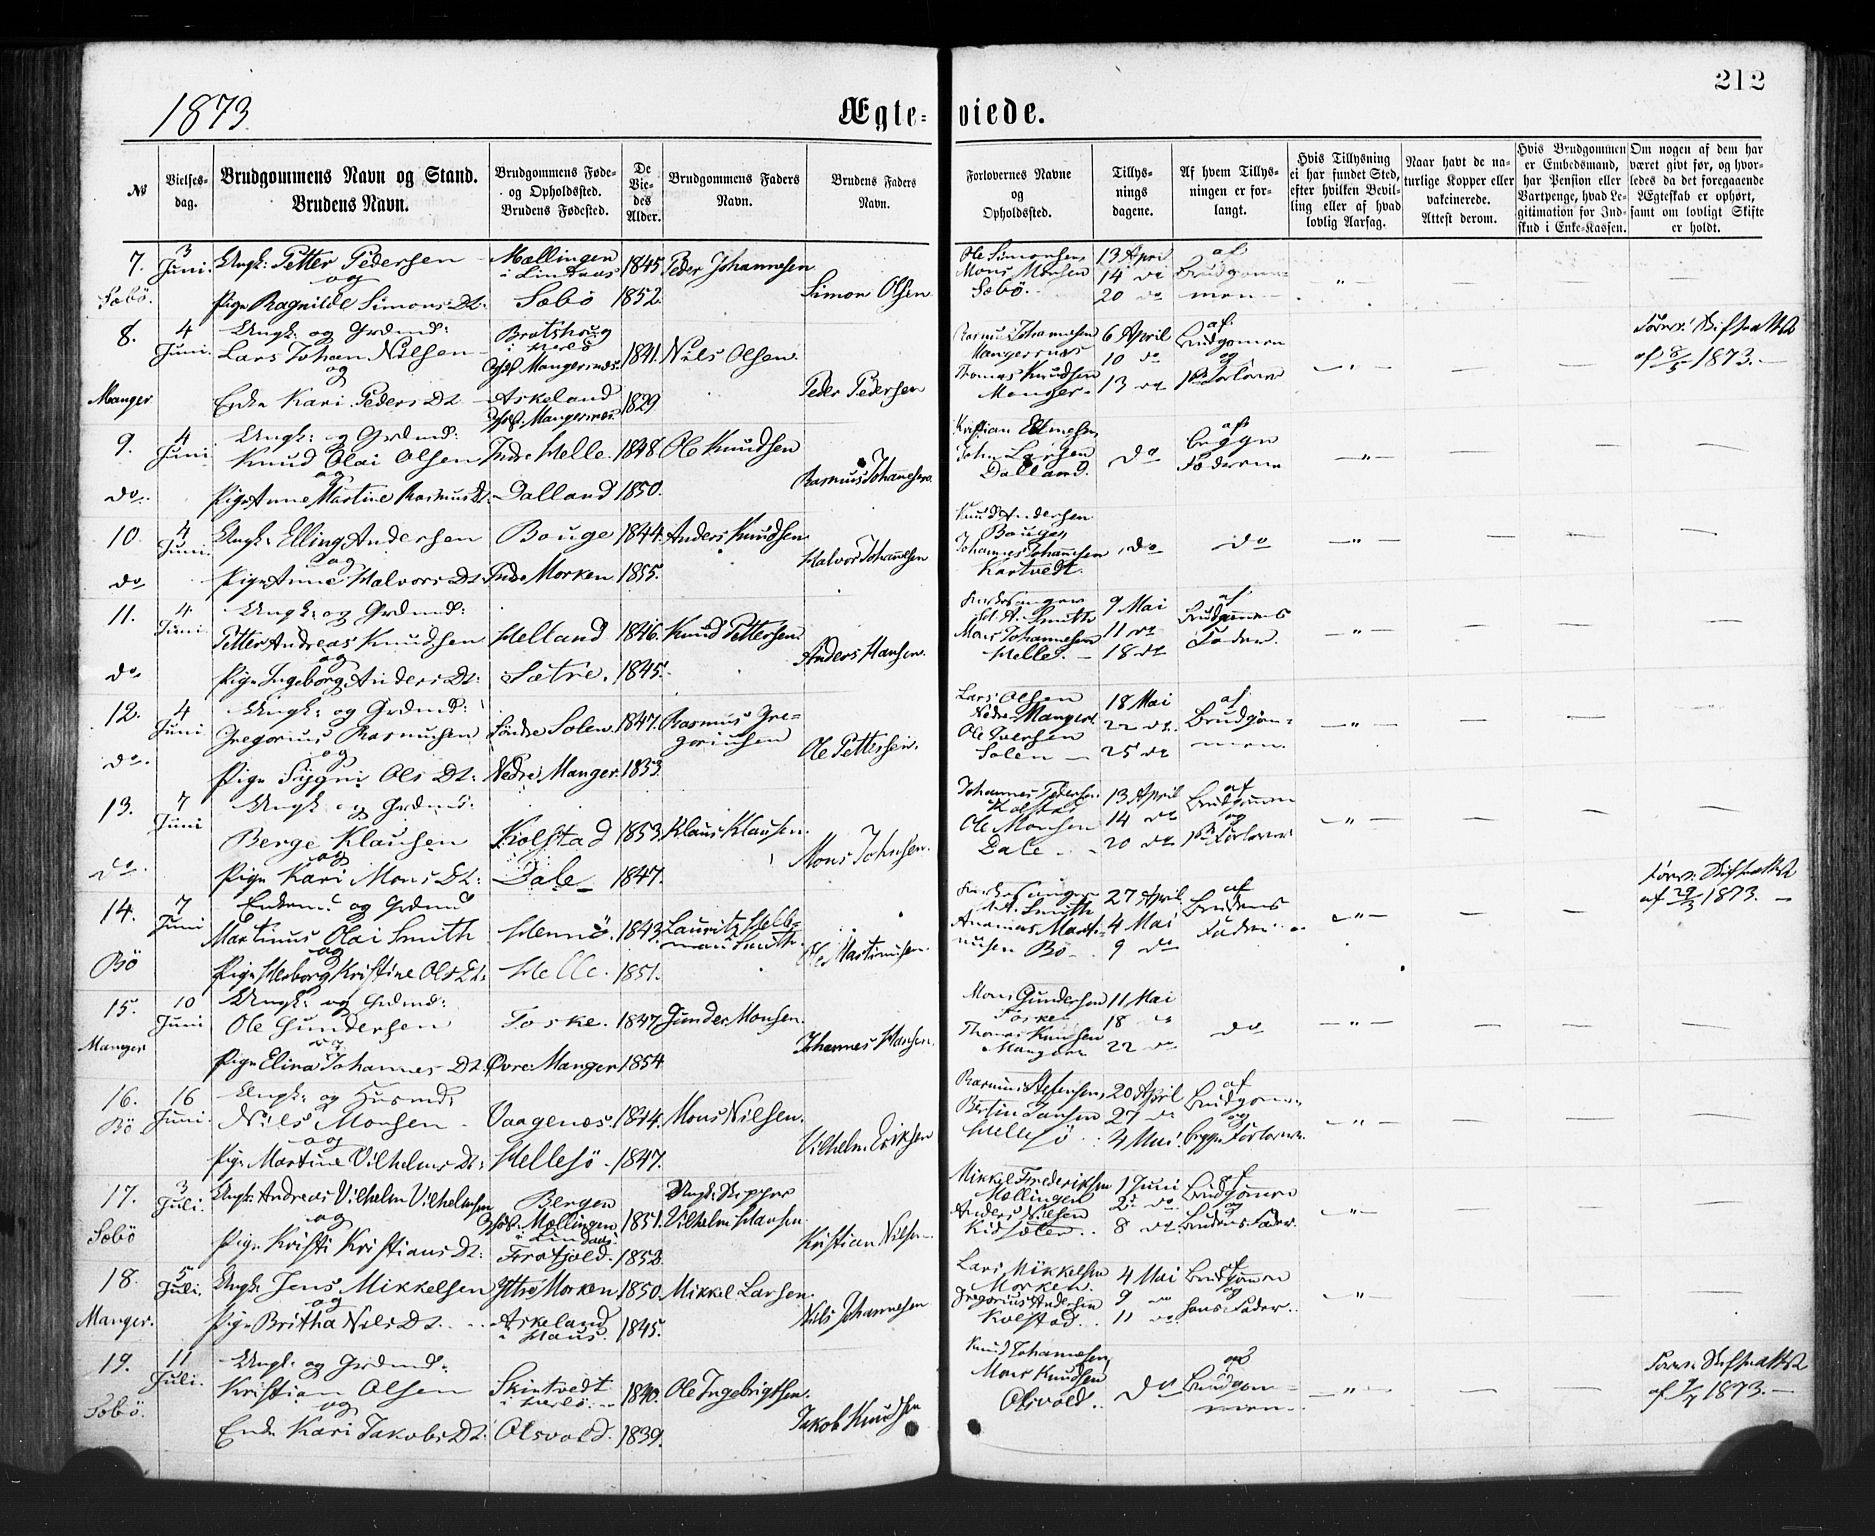 212
1873.
Ægte- viede.
№
Vielses-
dag.
Brudgommens Navn og Stand.
Brudens Navn.
Brudgommens Føde-
og Opholdssted.
Brudens Fødested.
De
Vie-
des
Alder.
Brudgommens Faders
Navn.
Brudens Faders
Navn.
Forlovernes Navne
og
Opholdssted.
Tillys-
nings
dagene.
Af hvem Tillys-
ningen er for-
langt.
Hvis Tillysning
ei har fundet Sted,
efter hvilken Bevil-
ling eller af hvad
lovlig Aarsag.
Naar havt de na-
turlige Kopper eller
vakcinerede.
Attest derom.
Hvis Brudgommen
er Embedsmand,
har Pension eller
Vartpenge, hvad Le-
gitimation for Ind-
skud i Enke-Kassen.
Om nogen af dem har
været givt før, og hvor-
ledes da det foregaaende
Ægteskab er ophørt,
samt om lovligt Skifte
er holdt.
7. 3 Juni. Ungk: Petter Pedersen Mællingen i Lindaas 1845. Peder Johannesen
og
Sæbö. Pige Ragnilde Simons Dt: Sæbö 1852. Simon Olsen
Ole Simonsen, 13 April af
Mons Monsen 14 do Brudgom-
Sæbö. 20 do men
8. 4 Juni. Ungk: og Grdmd:
Lars Johan Nilsen i Herlö 1841. Nils Olsen.
og Ophs. Mangersnæs.
Manger Enke Kari Peders Dt Askeland 1829 Peder Pedersen
Ophs. Mangersnæs.
Rasmus Johannesen 6 April af
Mangersnæs 10 do Brudgommen og
Thomas Knudsen 13 do Forlover
Manger.
af 1873.
9. 4 Juni Ungk: og Grdmd:
Knud Olai Olsen Indre Helle. 1848. Ole Knudsen
og
do. Pige Anne Martine Rasmus Dt. Dalland 1850. Rasmus Johannesen.
Kristian
John Larsen do begge
Dalland. Fædrene
10. 4 Juni. Ungk: Elling Andersen Bouge 1844. Anders Knudsen
og
do Pige Anne Halvors Dt. Indre Morken 1855. Halvor Johannesen
Knud Andersen
Bouge,
Johannes Johannesen do do
Kartvedt.
11. 4 Juni. Ungk: og Grdmd:
Petter Andreas Knudsen Helland 1846. Knud Pettersen
og
do Pige Ingeborg Anders Dt: Sætre. 1845. Anders Hansen.
Kirkesanger 9 Mai af
A. Smith Brudgommens
Mons Johannesen 11 do Fader.
Helle. 18 do
12. 4 Juni Ungk: og Grdmd:
Gregorius Rasmusen Söndre Solem 1847. Rasmus Gre-
og goriusen
do. Pige Siggni Ols Dt: Nedre Manger. 1853. Ole Pettersen.
Lars Olsen 18 Mai af
Nedre Manger. 22 do. Brudgom-
Ole Iversen men.
Solem 25 do
13. 7 Juni Ungk: og Grdmd:
Berge Klausen Kolstad 1853. Klaus Klausen.
og
do. Pige Kari Mons Dt: Dale 1847. Mons Johnsen.
Johannes Pedersen 13 April af
Kolstad 14 do Brudgommen og
Ole Monsen Forlover
Dale 20 do
14. 7 Juni Enkem: og Grdmd
Martinus Olai Smith Hennö. 1843. Lauritz Helle-
og mann Smith.
Bö Pige Herborg Kristine Ols Dt: Helle. 1851. Ole Martinusen.
Kirkesanger 27 April af
A. Smith Brudens
Ananias Marti- 4 Mai Fader.
nusen Bö. 9 do
af 1873.
15. 10 Juni Ungk: og Grdmd:
Ole Gundersen Toske. 1847. Gunder Monsen.
og
Manger Pige Elina Johannes Dt. Øvre Manger 1854 Johannes Hansen.
Mons Gundersen 11 Mai
Toske 18 do
Thomas Knudsen do
Manger 22 do
16. 16 Juni. Ungk: og Husmd:
Bö Nils Monsen Vaagenæs. 1844. Mons Nilsen.
og
Pige Martine Vilhelms Dt: Hellesö. 1847. Vilhelm Eriksen
Rasmus Stefensen, 20 April af
Bertin Jansen 27 do Brudgom- og
Hellesö 4 Mai. begge Forlovere.
17. 3 Juli. Ungk: Andreas Vilhelm Vilhelmsen Bergen
og Ophs. Mællingen 1851. Vilhelm Hansen
i Lindaas
Sæbö Pige Kristi Kristians Dt: 1852. Kristian Nilsen
Mikkel Frederiksen 1 Juni af
Mællingen Brudgommen
Anders Nilsen og
8 do. Brudens Fader.
18. 5 Juli. Ungk: Jens Mikkelsen Yttre Morken 1850. Mikkel Larsen.
og
Manger. Pige Britha Nils Dt. Askeland 1845. Nils Johannesen
i Haus.
Lars Mikkelsen 4 Mai af
Morken. Brudgommen
Gregorius Andersen 9 do og
Kolstad. 11 do. hans Fader.
19. 11 Juli. Ungk: og Grdmd:
Kristian Olsen Skintvedt 1840. Ole Ingebrigtsen.
og i Herlö.
Sæbö. Enke Kari Jakobs Dt: Olsvold. 1839. Jakob Knudsen
Knud Johannesen,
Mons Knudsen af
Olsvold. do Brudgom-
men.
af 1873.